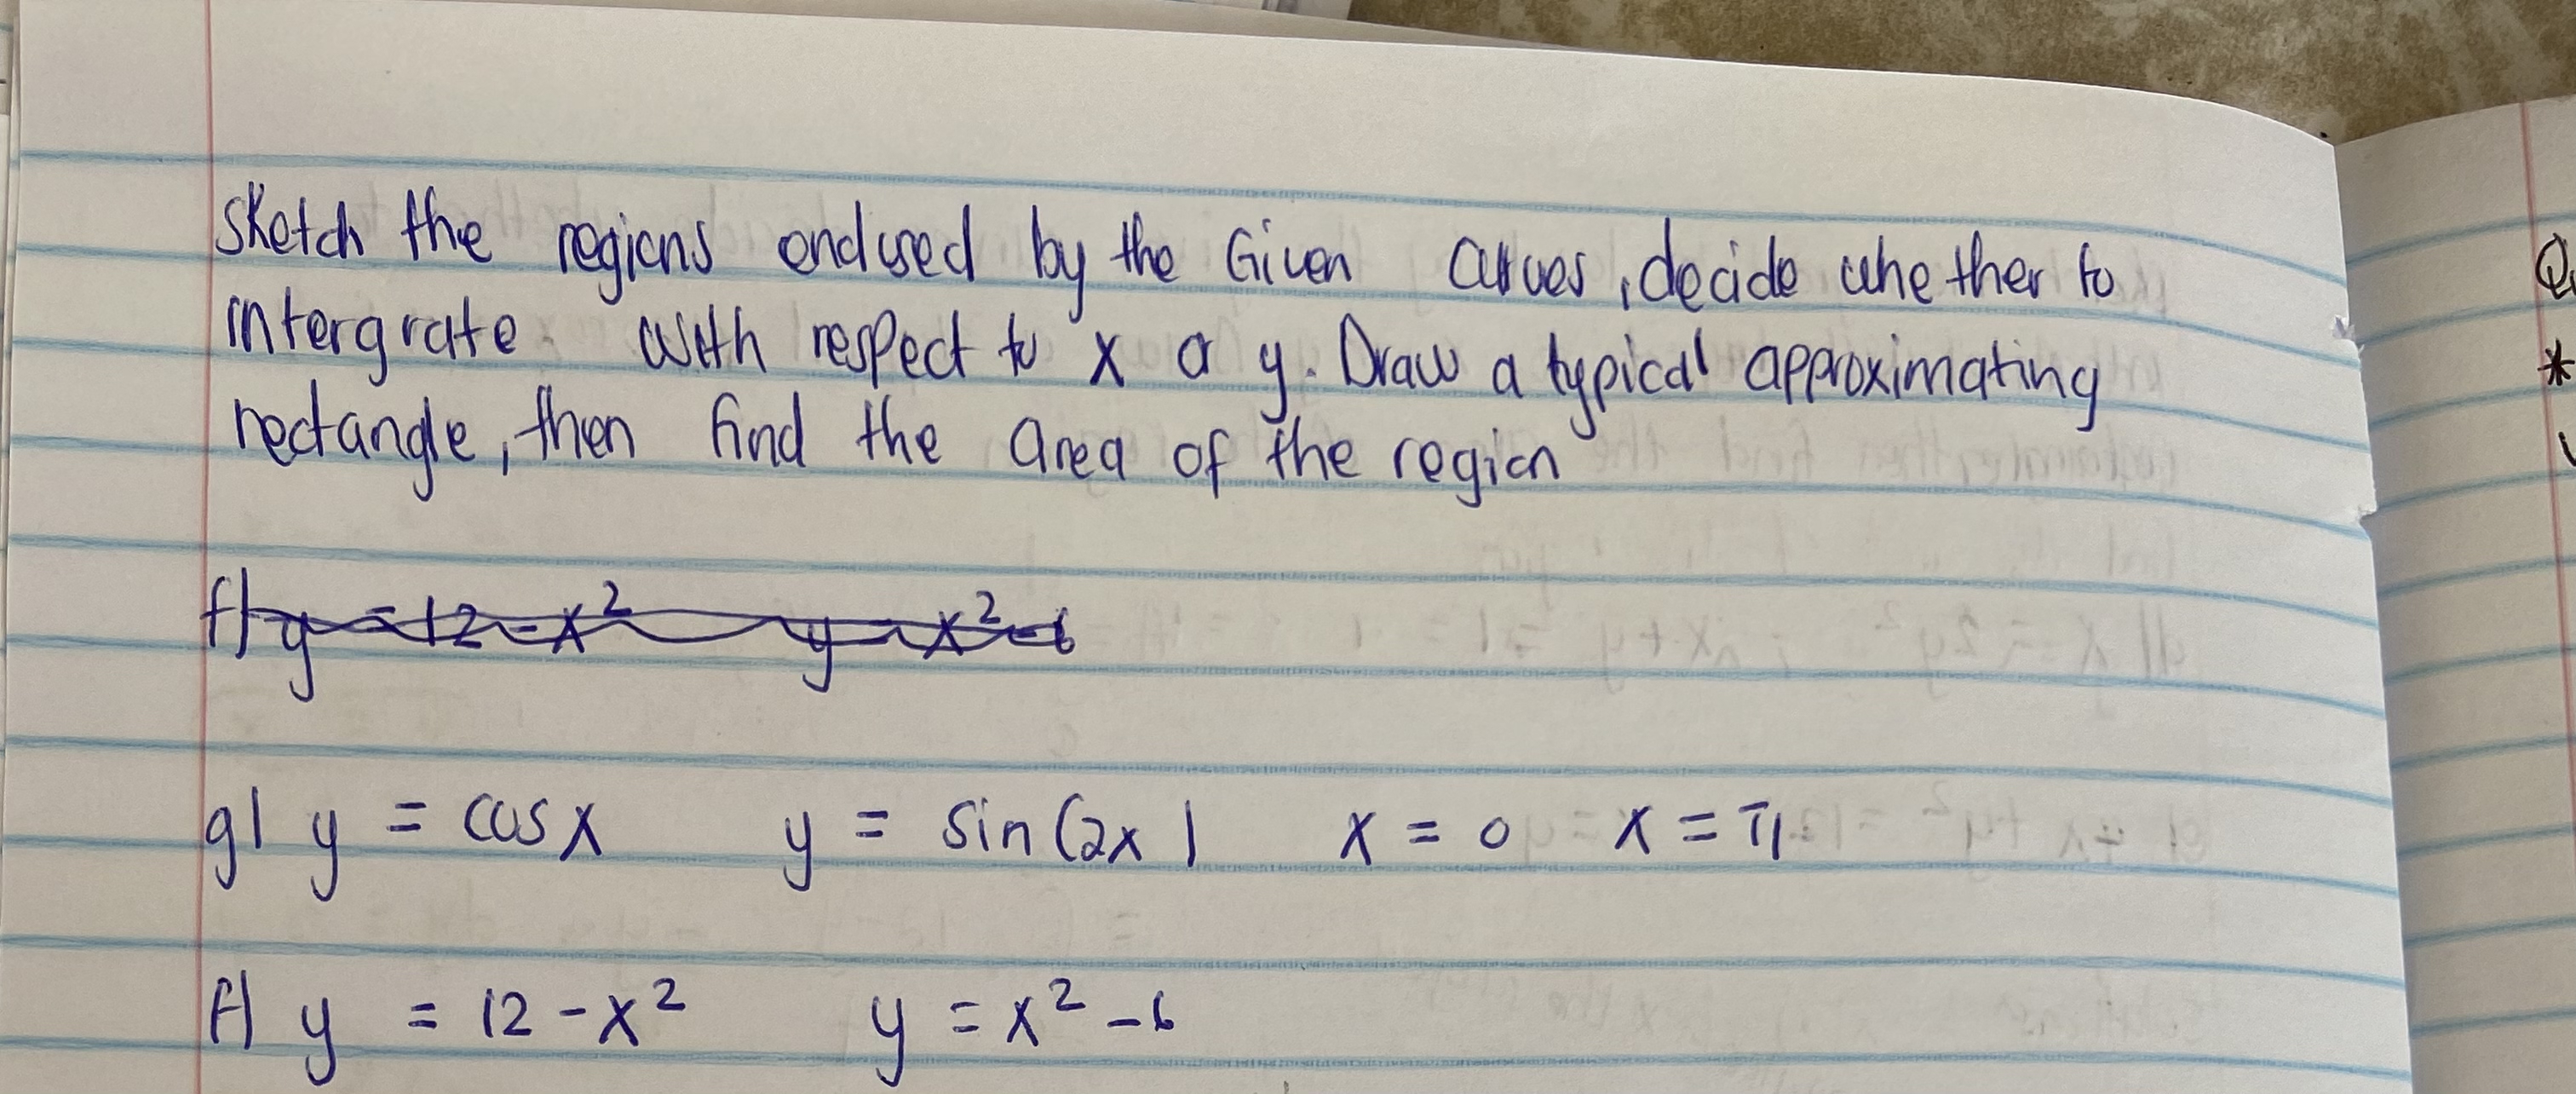 Sketch the regions enclused by the Given curves, decide whether to
intergrate with respect to x or y. Draw a typical approximating
rectangle, then find the area of the region
f) y = 12 - x² y = x² - 6
g) y = cos x y = sin (2x) x = 0 x = π
f) y = 12 - x² y = x² - 6